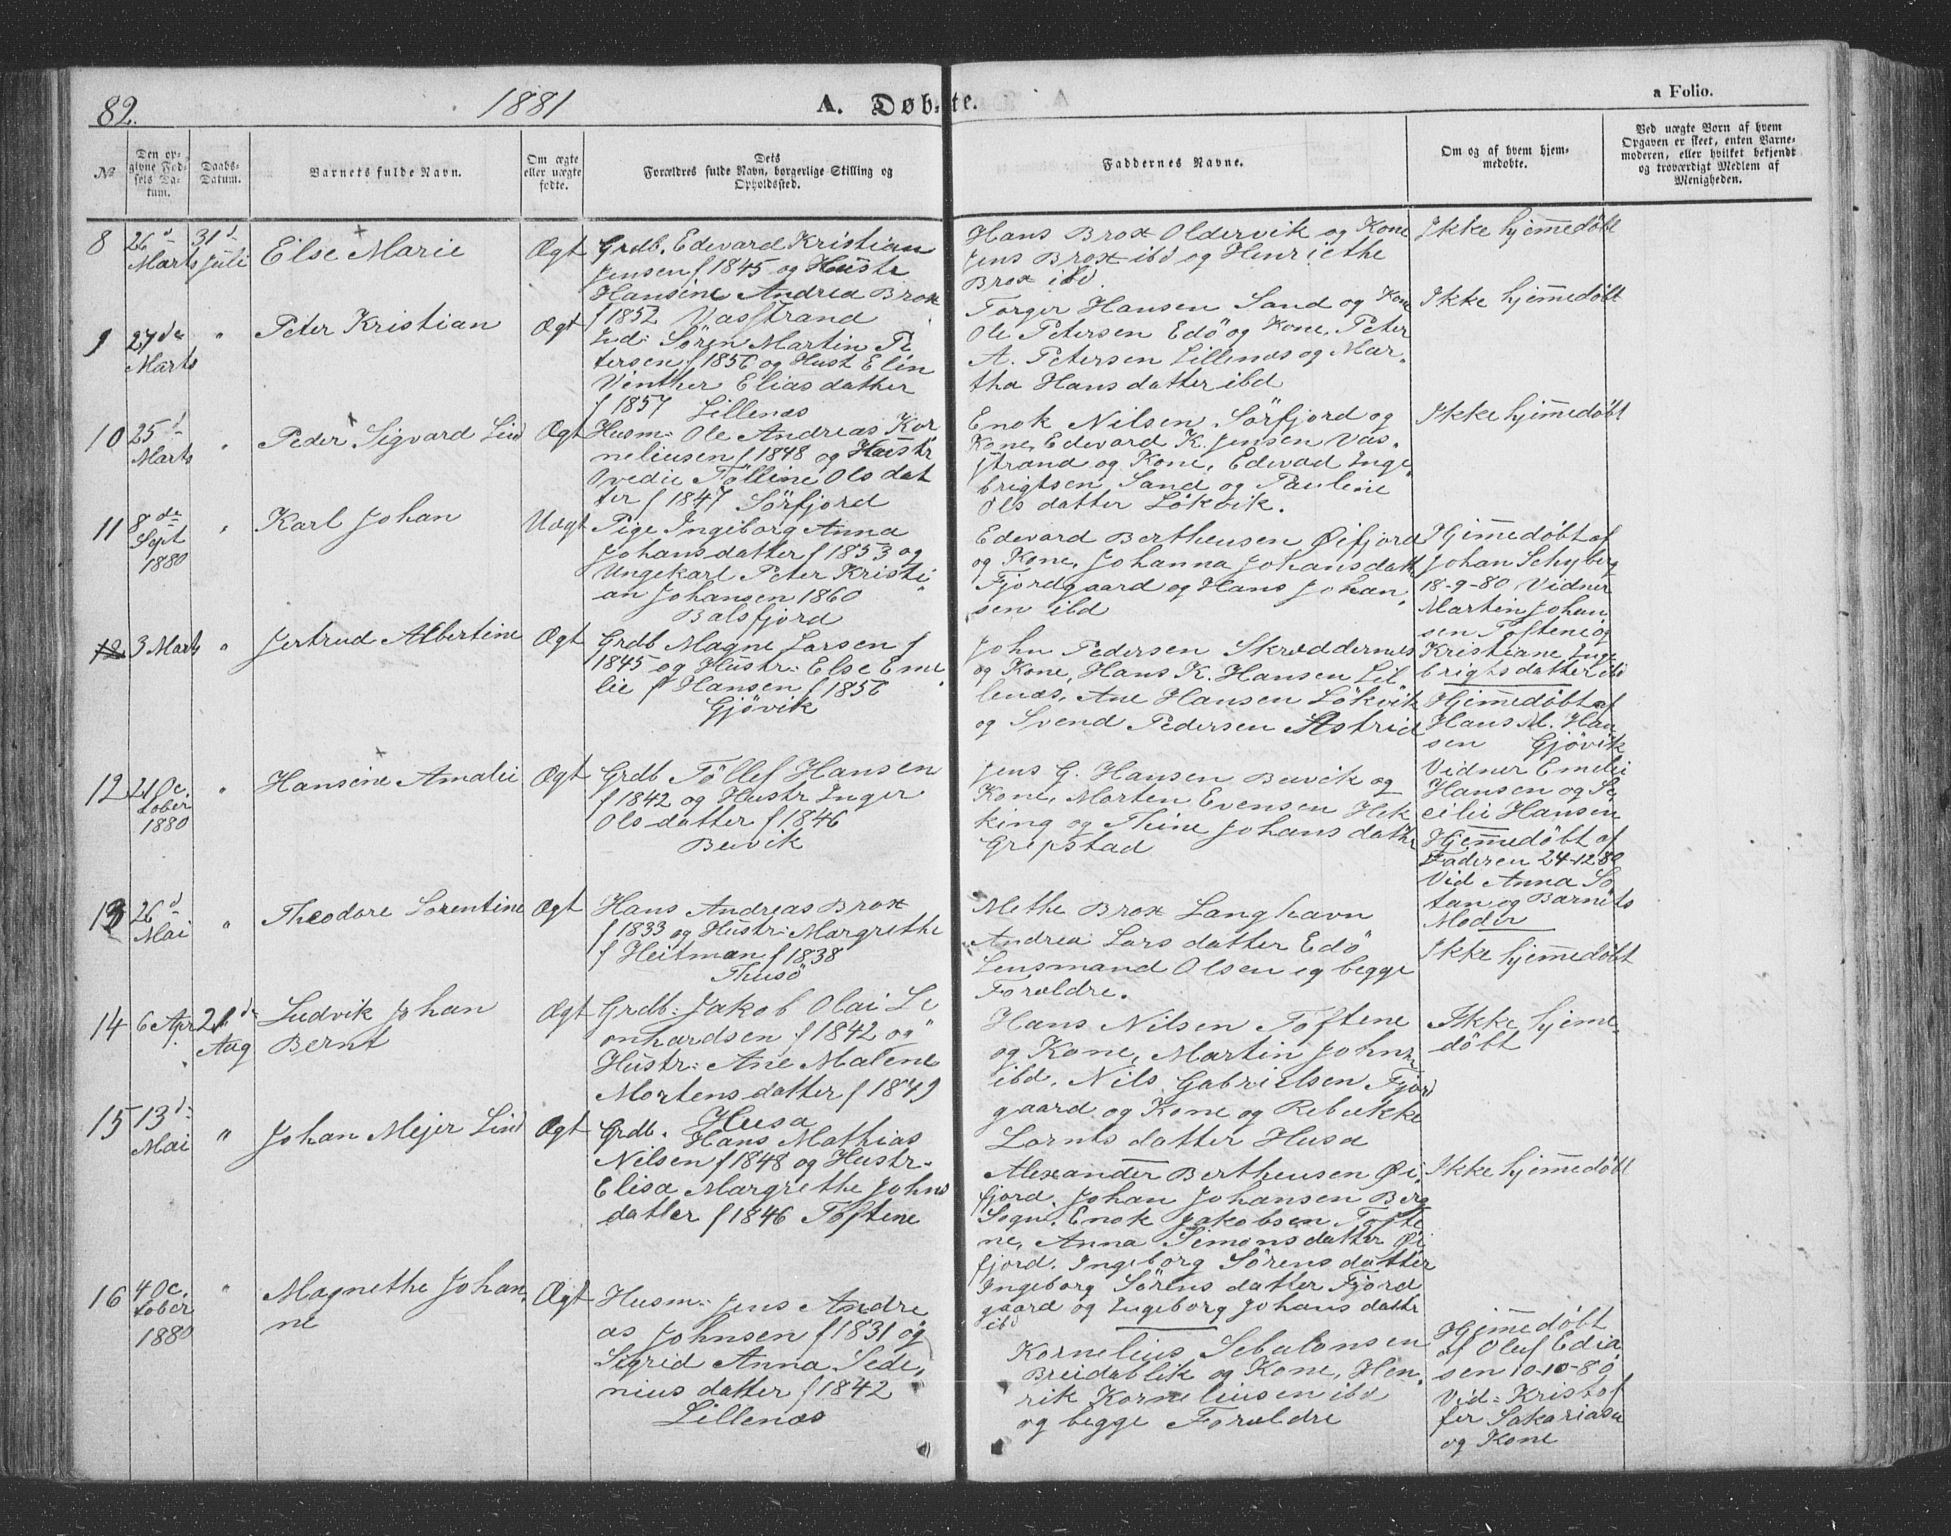 82.
1881
A. Døbte.
a Folio.
No
Den opgivne Fødsels Datum.
Daabs-Datum.
Barnets fulde Navn.
Om ægte eller uægte fødte.
Dets Forældres fulde Navn, borgerlige Stilling og Opholdssted.
Faddernes Navne.
Om og af hvem hjemmedøbte.
Ved uægte Børn af hvem Opgaven er skeet, enten Barnemoderen, eller hvilket bekjendt og troværdigt Medlem af Menigheden.
8
26d Marts
31d Juli
Else Marie
Ægt
Grdb. Edevard Kristian
Jensen f 1845 og Hustr
Hansine Andrea Brox
f 1852 Vasstrand
Hans Brox Oldervik og Kone
Jens Brox ibd og Henriethe
Brox ibd.
Ikke hjemmedøbt
9
27de Marts
"
Peter Kristian
Ægt
Ind: Sören Martin Pe
tersen f 1856 og Hust Elen
Vinther Eliasdatter
f 1857 Lillenæs
Torger Hansen Sand og Kone
Ole Petersen Edö og Kone, Peter
A. Petersen Lillenæs og Mar-
tha Hansdatter ibd
Ikke hjemmedöbt
10
25d Marts
"
Peder Sigvard Lind
Ægt
Husm: Ole Andreas Kor
neliusen f 1848 og Hustr
Ovedie Tölline Olsdat
ter f 1847 Sörfjord
Enok Nilsen Sörfjord og
Kone, Edevard K. Jensen Vas-
strand og Kone, Edevad Inge
brigtsen Sand og Pauline
Olsdatter Lökvik.
Ikke hjemmedöbt
11
8de Sept 1880
"
Karl Johan
Uægt
Pige Ingeborg Anna
Johansdatter f 1853 og
Ungekarl Peter Kristi
an Johansen 1860
Balsfjord
Edevard Bertheusen Öifjord
og Kone, Johanna Johansdatt
Fjordgaard og Hans Johan-
sen ibd
Hjemmedöbt af
Johan Schyberg
18-9-80 Vidner
Martin Johan
sen Toftene og
Kristiane Inge
brigtsdatter ibd
12
3 Marts
"
Jertrud Albertine
Ægt
Grdb Magne Larsen f
1845 og Hustr: Else Eme
lie f Hansen f 1856
Gjövik
John Pedersen Skreddernes
og Kone, Hans K. Hansen Lil
lenæs, Ane Hansen Lökvik
og Svend Pedersen Astrid
Hjemmedöbt af
Hans M. Han
sen Gjövik
Vidner Emelie
Hansen og Se
cilie Hansen
12
21 Oc.
tober
1880
"
Hansine Amalie
Ægt
Grdb Töllef Hansen
f 1842 og Hustr Inger
Olsdatter f 1846
Buvik
Jens G. Hansen Buvik og
Kone, Morten Evensen Hek
king og Thine Johansdatter
Grepstad
Hjemmedöbt af
Faderen 24-12-80
Vid Anna So
fan og Barnets
Moder
13
26d Mai
"
Theodore Sorentine
Ægt
Hans Andreas Brox
f 1833 og Hustr: Margrethe
f Heitman f 1838
Thusö
Methe Brox Langhavn
Andrea Larsdatter Edö
Lensmand Olsen og begge
Forældre.
Ikke hjemmedöbt
14
6 Apr
21d Aug
Ludvik Johan
Bernt
Ægt
Grdb: Jakob Olai Le
onhardsen f 1842 og
Hustr: Ane Malene
Mortensdatter f 1849
Husa
Hans Nilsen Toftene
og Kone, Martin Johns
ibd. Nils Gabrielsen Fjord
gaard og Kone og Rebekke
Lorntsdatter Husa
Ikke hjeme-
döbt
15
13d Mai
"
Johan Mejer Lind
Ægt
Grdb. Hans Mathias
Nilsen f 1848 og Hustr-
Elisa Margrethe Johns
datter f 1846 Toftene
Alexander Bertheusen Öi-
fjord. Johan Johansen Berg
Sogn. Enok Jakobsen Tofte
ne, Anna Simonsdatter Öi
fjord. Ingeborg Sörensdatter
Ingeborg Sörensdatter Fjord
gaard og Ingeborg Johansdatter
ibd
Ikke hjemmedöbt
16
4 Oc.
tober
1880
"
Magnethe Johan,
ne
Ægt
Husm: Jens Andre
as Johnsen f 1831 og
Sigrid Anna Sede,
niusdatter f 1842
Lillenæs
Kornelius Sebulonsen
Breidablik og Kone, Hen,
rik Korneliusen ibd
og begge Forældre
Hjemmedöbt
af Oluf Edia
sen 10-10-80
Vid: Kristof
fer Sakariasen
og Kone